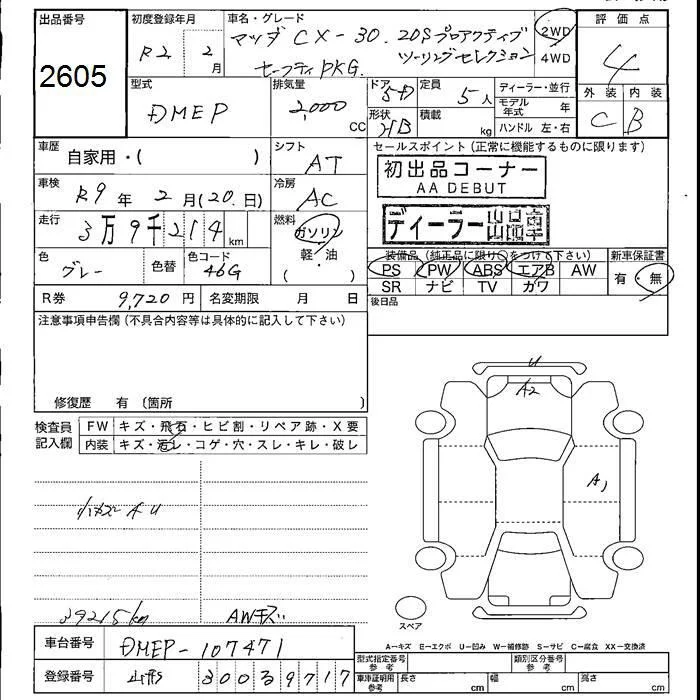 出品番号
2605
初度登録年月
R2 年 2 月
車名・グレード
マツダ CX-30. 20S プロアクティブ
ツーリングセレクション
セーフティPKG.
2WD
4WD
評価点
4
外装 内装
C B
型式
DMEP
排気量
2,000 CC
ドア 5D
形状 HB
定員 5人
積載 kg
ディーラー・並行
モデル年式 年
ハンドル 左・右
車歴
自家用・( )
シフト AT
セールスポイント (正常に機能するものに限ります)
初出品コーナー
AA DEBUT
ディーラー
車検 R9 年 2 月 (20.日)
冷房 AC
走行 3万9千214 km
燃料 ガソリン
軽・油
( )
色 グレー
色替
色コード 46G
装備品 (純正品に限り○をつけて下さい)
PS PW ABS エアB AW
SR ナビ TV カワ
新車保証書
有・無
R券 9,720 円
名変期限 月 日
後日品
注意事項申告欄 (不具合内容等は具体的に記入して下さい)
修復歴 有 (箇所
検査員記入欄
FW キズ・飛石・ヒビ割・リペア跡・X要
内装 キズ・汚レ・コゲ・穴・スレ・キレ・破レ
小キズ A U
39215km
AWキズ
U
A2
A1
スペア
A−キズ E−エクボ U−凹み W−補修跡 S−サビ C−腐食 XX−交換済
車台番号 DMEP-107471
登録番号 山形 300 39717
型式指定番号 参考
類別区分番号 参考
車庫証明用 参考
長さ cm 幅 cm 高さ cm